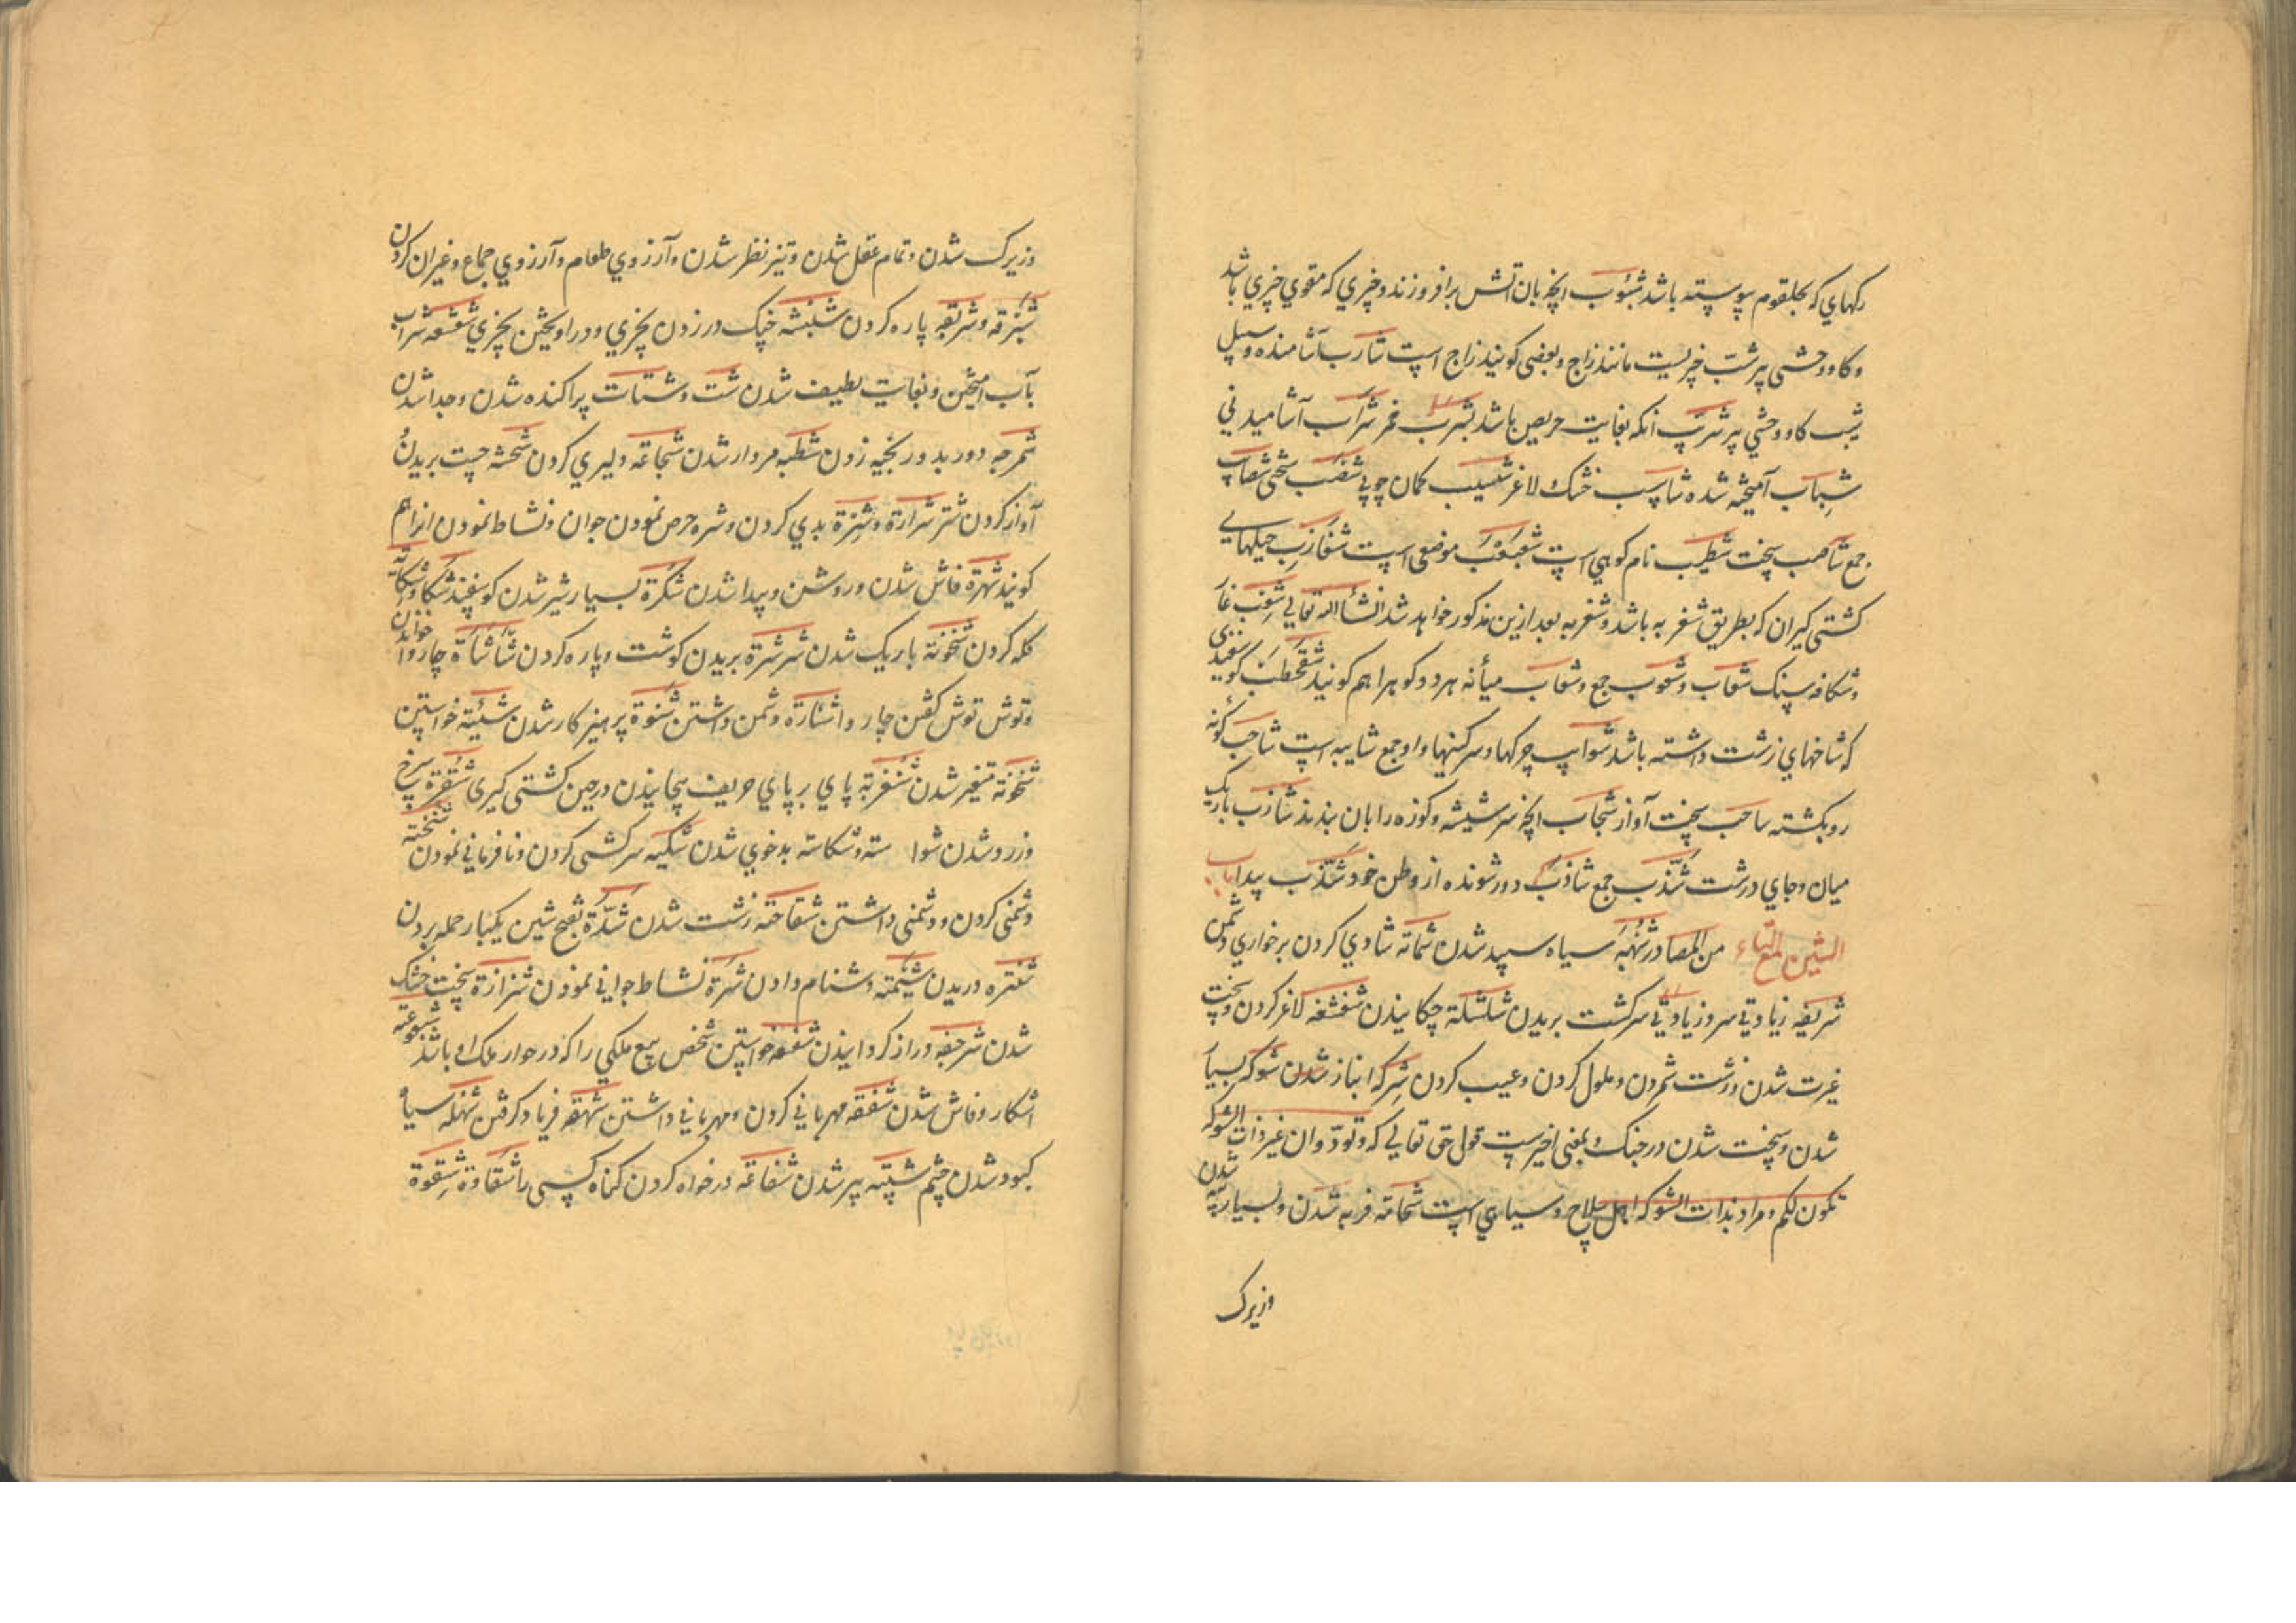 رکهای که بحلقوم پیوسته باشد شبوب انچه بان اتش برافروزند و چیزی که مقوی چیزی باشد
و کاو وحشی پر شب چیزیست مانند زاج و بعضی کویند زاج است شارب آشامنده و سبیل
شبب کاو وحشی پر شرب انکه بغایت حریص باشد بشرب خمر شراب آشامیدنی
شباب آمیخته شده شاسب خشک لاغر شسیب کمان چوبی شصب سختی شصاب
جمع شاصب سخت شطیب نام کوهی است شعبعب موضعی است شغازب حیلهای
کشتی کیران که بطریق شغربه باشد و شغربه بعد ازین مذکور خواهد شد انشأ الله تعالی شعب غار
و شکافه سنک شقاب و شقوب جمع و شقاب میأنه هر دو کوه را هم کویند شقحطب کوسفندی
که شاخهای زشت داشته باشد شوایب چرکها و سرکینها و او جمع شایبه است شاحب کونه
رو بکشته شاخب سخت آواز شجاب انچه سر شیشه و کوزه را بان بندند شازب باریک
میان و جای درشت شذب جمع شاذب دور شونده از وطن خود شذب پیدا
الشین مع التاء من المصادر شهبه سیاه سپید شدن شماته شادی کردن بر خواری دشمن
شریفه زیادتی سر و زیادتی سر کشت بریدن شلشلة چکانیدن شفشفه لاغر کردن و سخت
غیرت شدن و زشت شمردن و ملول کردن و عیب کردن شرکه انباز شدن شوکه بسیار
شدن و سخت شدن در جنک و بمعنی اخیرست قول حق تعالی که و تودون ان غیر ذات الشوکه
تکون لکم و مراد بذات الشوکه اهل سلاح و سپاهی است شحامه فربه شدن و بسیار پیه شدن
وزیرک
وزیرک شدن و تمام عقل شدن و تیز نظر شدن و آرزوی طعام و آرزوی جماع و غیر ان کردن
شبرقه و شربقه پاره کردن شبشه چنک در زدن بچیزی و دراویختن بچیزی شعشعه شراب
بآب امیختن و بغایت لطیف شدن شت و شتات پراکنده شدن و جدا شدن
شمرجه دور بدور بخیه زدن شطبه مردار شدن شجاعة دلیری کردن شحشه چست بریدن
آواز کردن شتر شرارة و شرة بدی کردن و شره حرص نمودن جوان و نشاط نمودن انرا هم
کویند شهرة فاش شدن و روشن و پیدا شدن شکرة بسیار شیر شدن کوسفند شکاو شکایه
کله کردن شخونة باریک شدن شرشرة بریدن کوشت و پاره کردن شأشأة چاروا خواندن
و توش توش کفتن چاروا شنارة دشمن داشتن شنوة پرهیزکار شدن شیئة خواستن
شخونة متغیر شدن شغزبة پای بر پای حریف پیچانیدن در حین کشتی کیری شقرة سرخ
و زرد شدن شواسته و شکاسته بدخوی شدن شکیه سرکشی کردن و نافرمانی نمودن شحنه
دشمنی کردن و دشمنی داشتن شقاحة زشت شدن شدة بفتح شین یکبار حمله بردن
شتره دریدن شیتمة دشنام دادن شرة نشاط جوانی نمودن شزازة سخت خشک
شدن شرجعه دراز کردانیدن شفعه خواستن شخص بیع ملکی را که در جوار ملک او باشد شیوعة
اشکار و فاش شدن شفقه مهربانی کردن و مهربانی داشتن شهقه فریاد کرفتن شهله سیاه
کبود شدن چشم شیبة پیر شدن شفاعة درخواه کردن کناه کسی را شقاوة شقوة